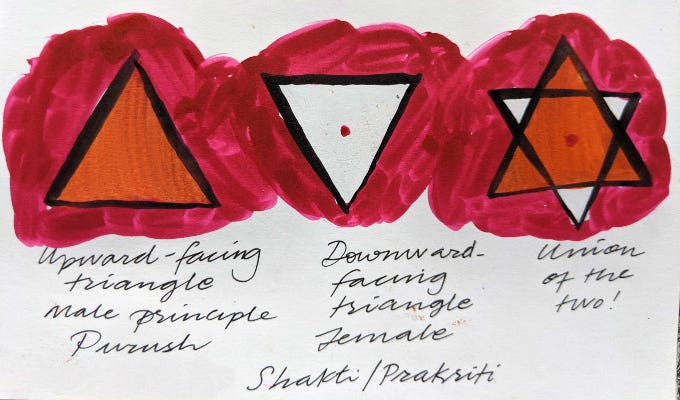 Upward-facing
triangle
Male principle
Purush
Downward-
facing
triangle
female
Shakti/Prakriti
Union
of the
two!